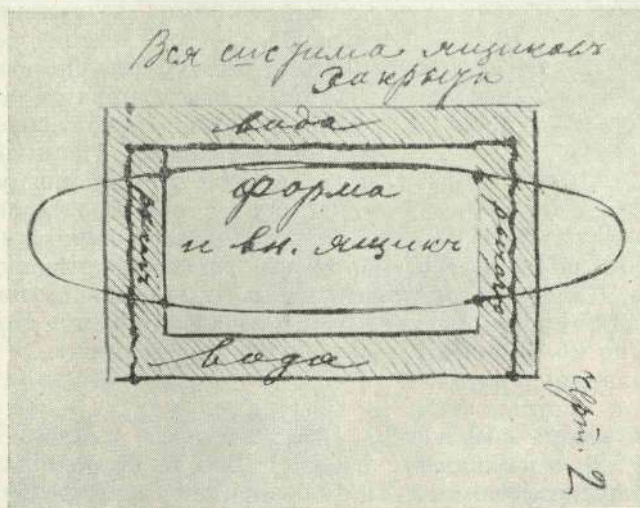 Вся система ящиковъ
закрыта
вода
форма
и вн. ящикъ
рычагъ
рычагъ
вода
Черт. 2